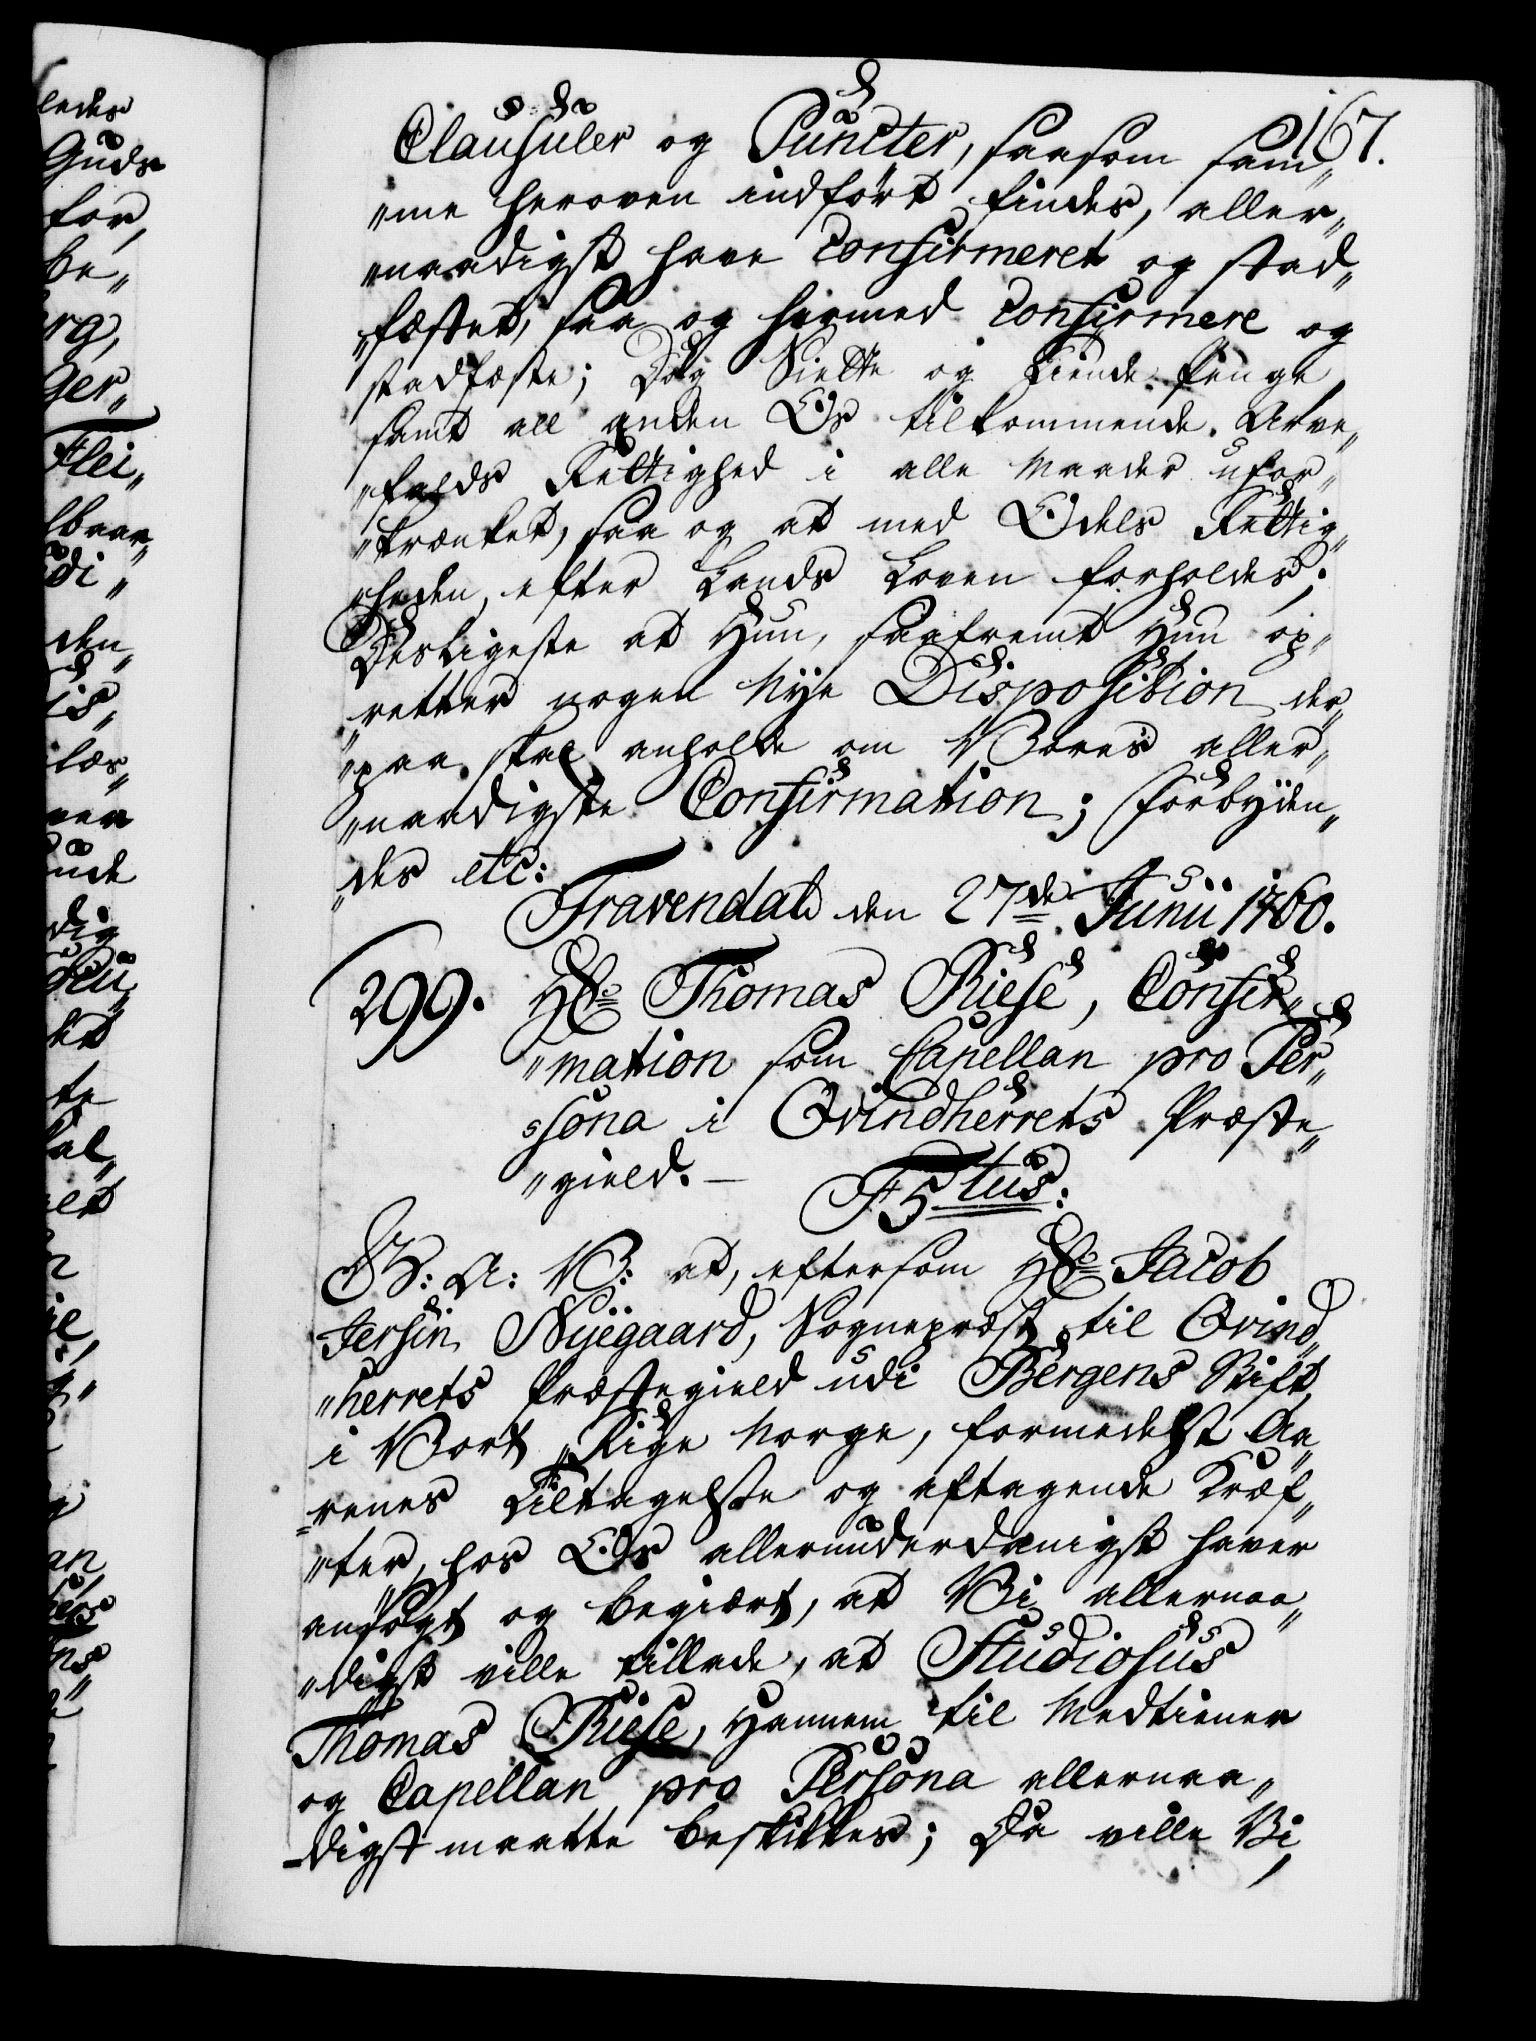 167.
Clausuler og Puncter, saasom sam„
„me heroven indført findes, aller„
„naadigst have confirmeret og stad„
„fæstet, saa og hermed confirmere og
stadfæste; Dog Siette og Tiende Penge
samt all anden Os tilkommende Arve„
„falds Rettighed i alle Maader ufor„
„krænket, saa og at med Odels Rettig„
„heden, efter Lands Loven forholdes;
Desligeste at Hun, saafremt Hun op„
„retter nogen Nye Disposition der„
„paa skal anholde om Vores aller„
„naadigste Confirmation; Forbyden„
„des etc:
Travendal den 27de Junii 1760.
299. Hr Thomas Riese, Confir„
„mation som Capellan pro Per„
„sona i Qvindherrets Præste„
„gield. —
F 5tus:
G: A: V: at, eftersom Hr Jacob
Jersin Nyegaard, Sognepræst til Qvind„
„herrets Præstegield udi Bergens Stift
i Vort Rige Norge, formedelst Aa„
„renes Tiltagelse og aftagende Kræf„
„ter, hos Os allerunderdanigst haver
ansøgt og begiært, at Vi allernaa„
„digst ville tillade, at Studiosus
Thomas Riese, Hannem til Medtiener
og Capellan pro Persona allernaa„
„digst maatte beskikkes; Da ville Vi,
ledes
Guds
for,
be„
rg,
ger„
Flei„
lbaar„
di„
den„
is„
læs„
ver
ude
dig
det
te
al„
elt
an